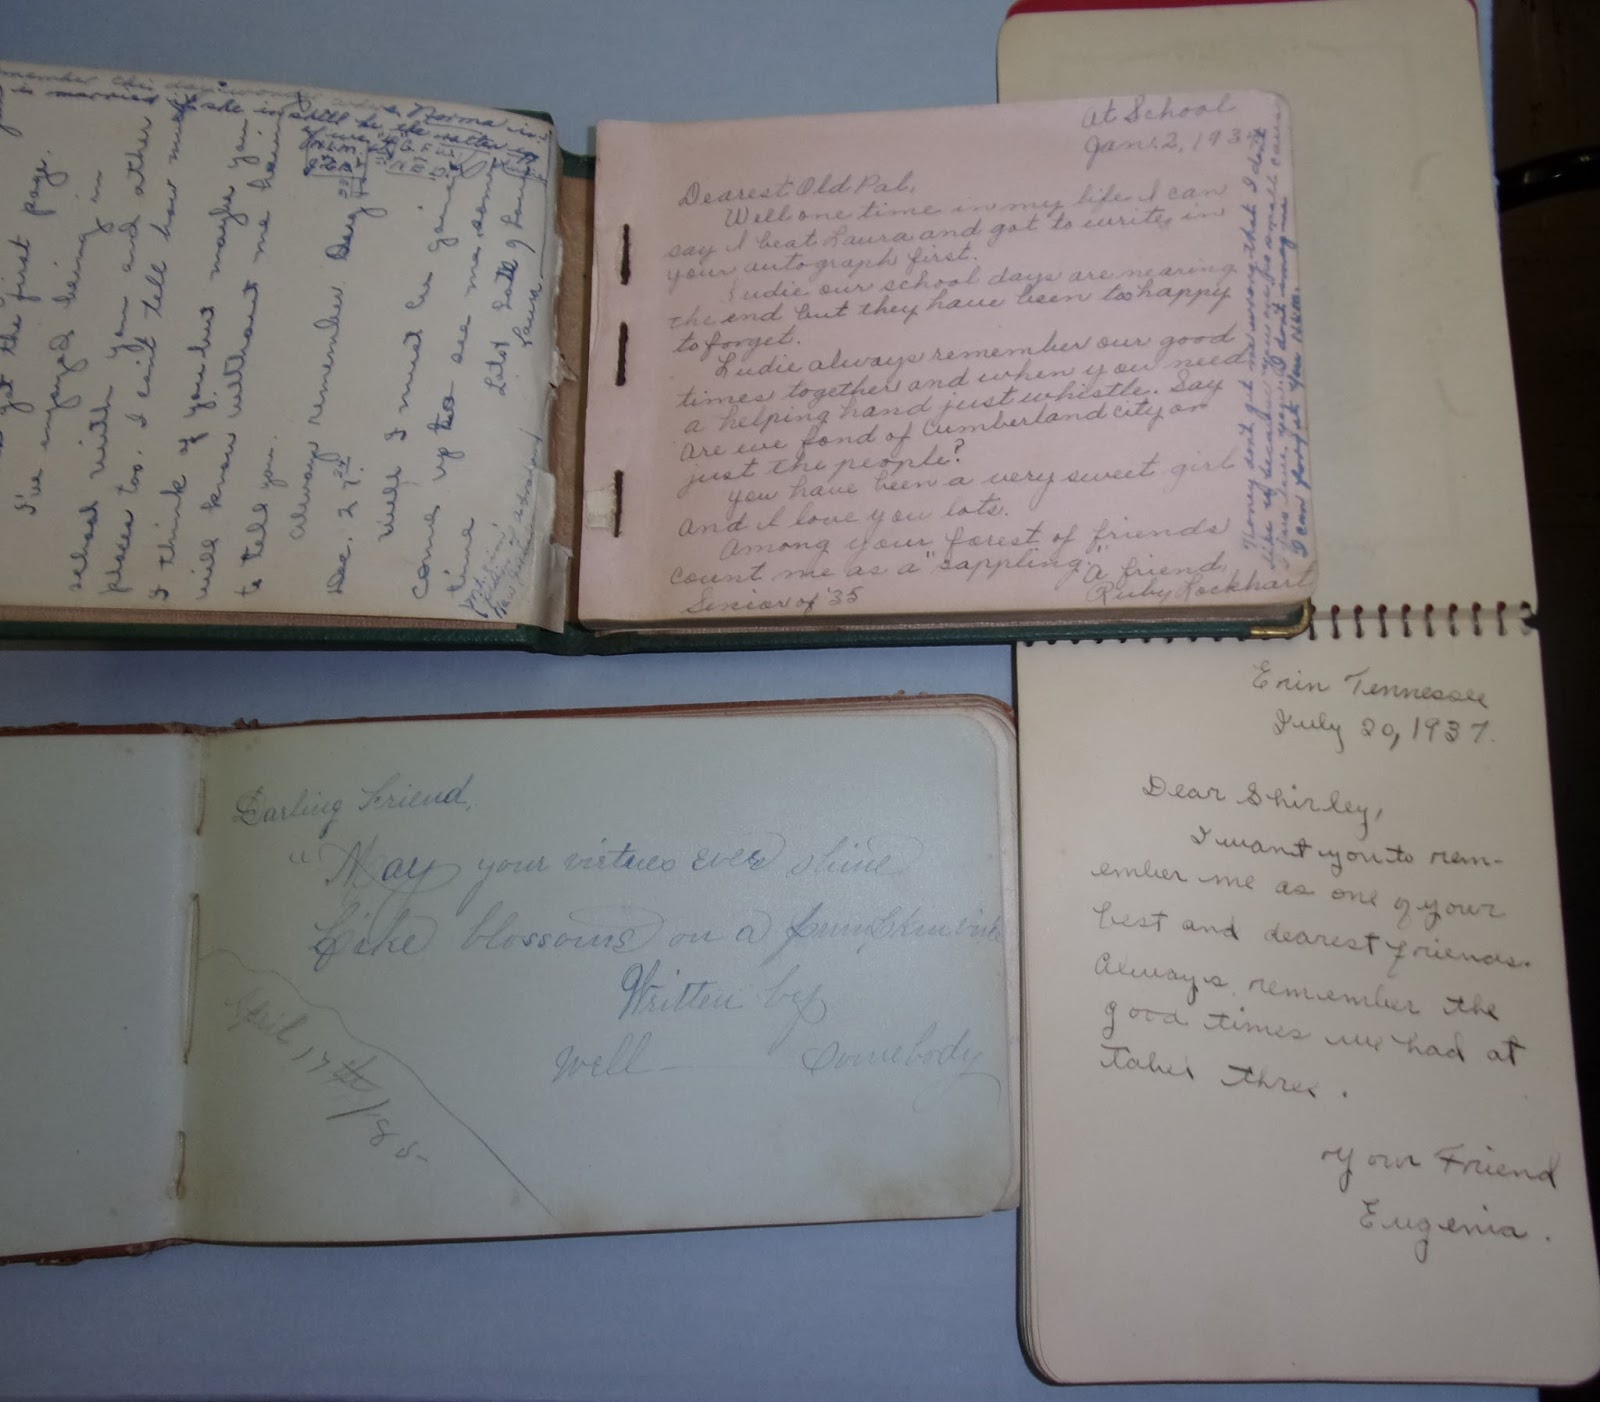 At School
Jan. 2, 193
Dearest Old Pal,
Well one time in my life I can
say I beat Laura and got to write in
your autograph first.
Ludie our school days are nearing
the end but they have been too happy
to forget.
Ludie always remember our good
times together and when you need
a helping hand just whistle. Say
are we fond of Cumberland city or
just the people?
You have been a very sweet girl
and I love you lots.
Among your forest of friends
count me as a "sappling."
A friend,
Senior of '35 Ruby Lockhart
Honey don't get me wrong that I don't
like it because you are
I can forget you
member this day
is married if she is still
got the first page.
I've enjoyed being in
school with you and other
places too. I can't tell how much
I think of you but maybe you
will know without me having
to tell you.
Always remember Day
Dec. 27th
Well I must be going
come up to see me some
time
Lots of Luck & Love
Laura
Darling Friend,
"May your virtues ever shine
Like blossoms on a pumpkin vine
Written by
Well Somebody
April 17th/85
Erin Tennessee
July 20, 1937.
Dear Shirley,
I want you to rem-
ember me as one of your
best and dearest friends.
Always remember the
good times we had at
table three.
Your Friend
Eugenia.